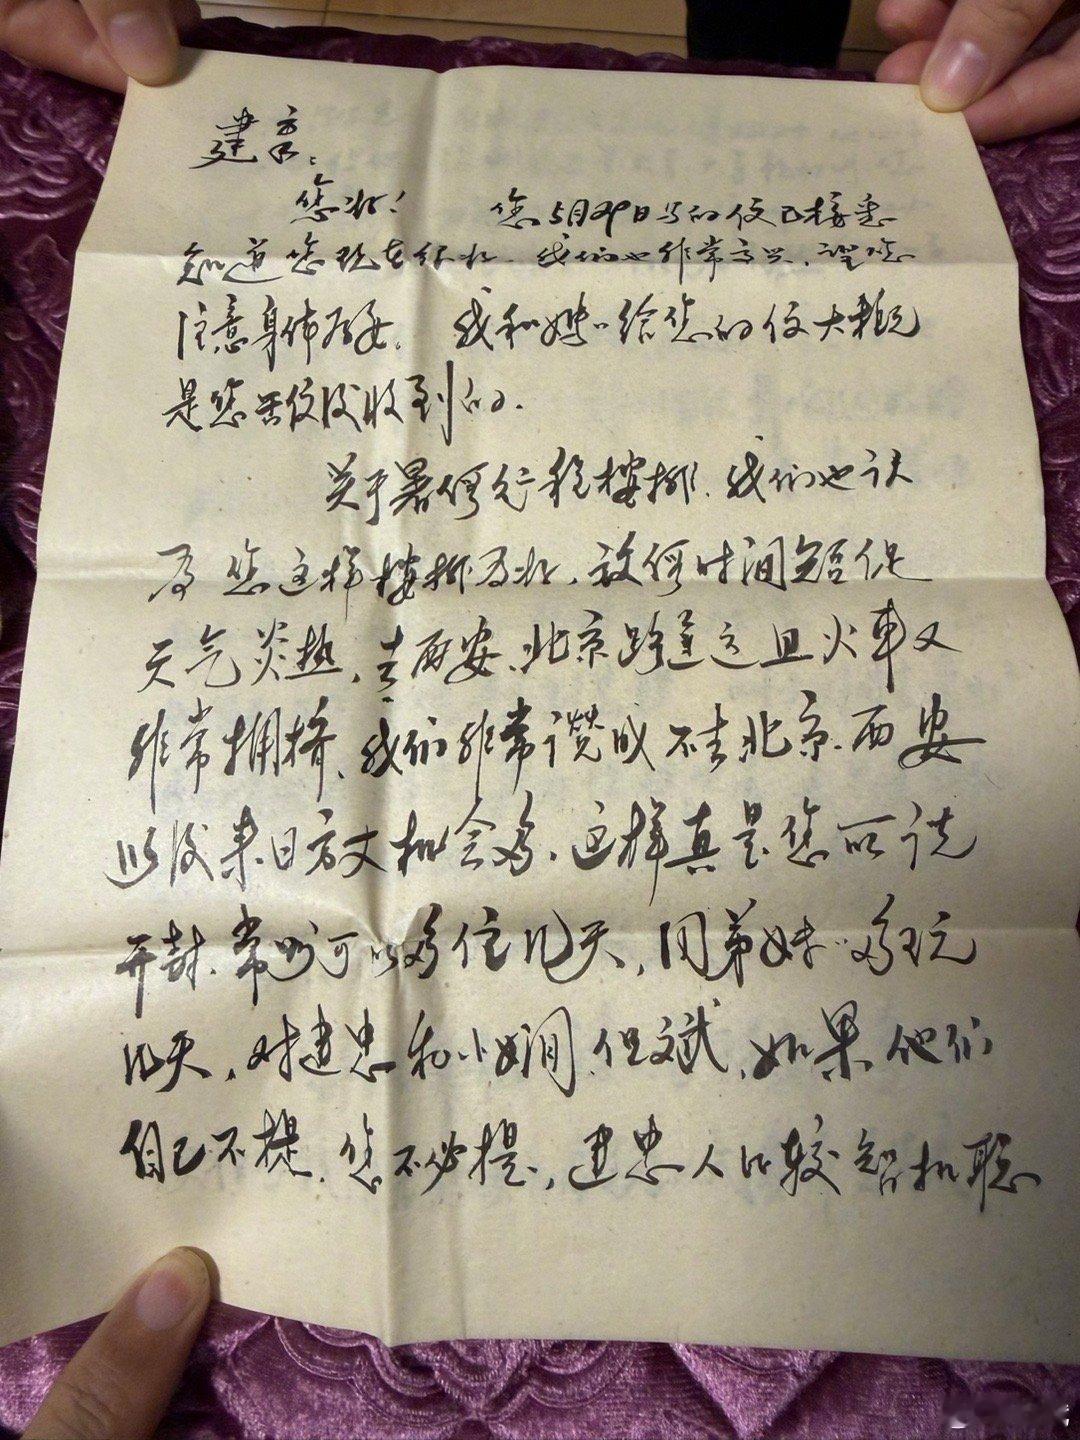 建京：
您好！ 您5月29日写的信已接悉
知道您现在很好，我们也非常高兴，望您
注意身体为要。 我和妈妈给您的信大概
是您寄信后收到的。
关于暑假行程安排，我们也认
为您这样安排为好，放假时间短促
天气炎热，去西安、北京路远，且火车又
非常拥挤、我们非常赞成不去北京、西安
以后来日方丈机会多，这样真是您所说
开封、常州可以多住几天，同弟妹妹多玩
几天，对建忠和小娟、但斌，如果他们
自己不提，您不必提，建忠人比较智机聪